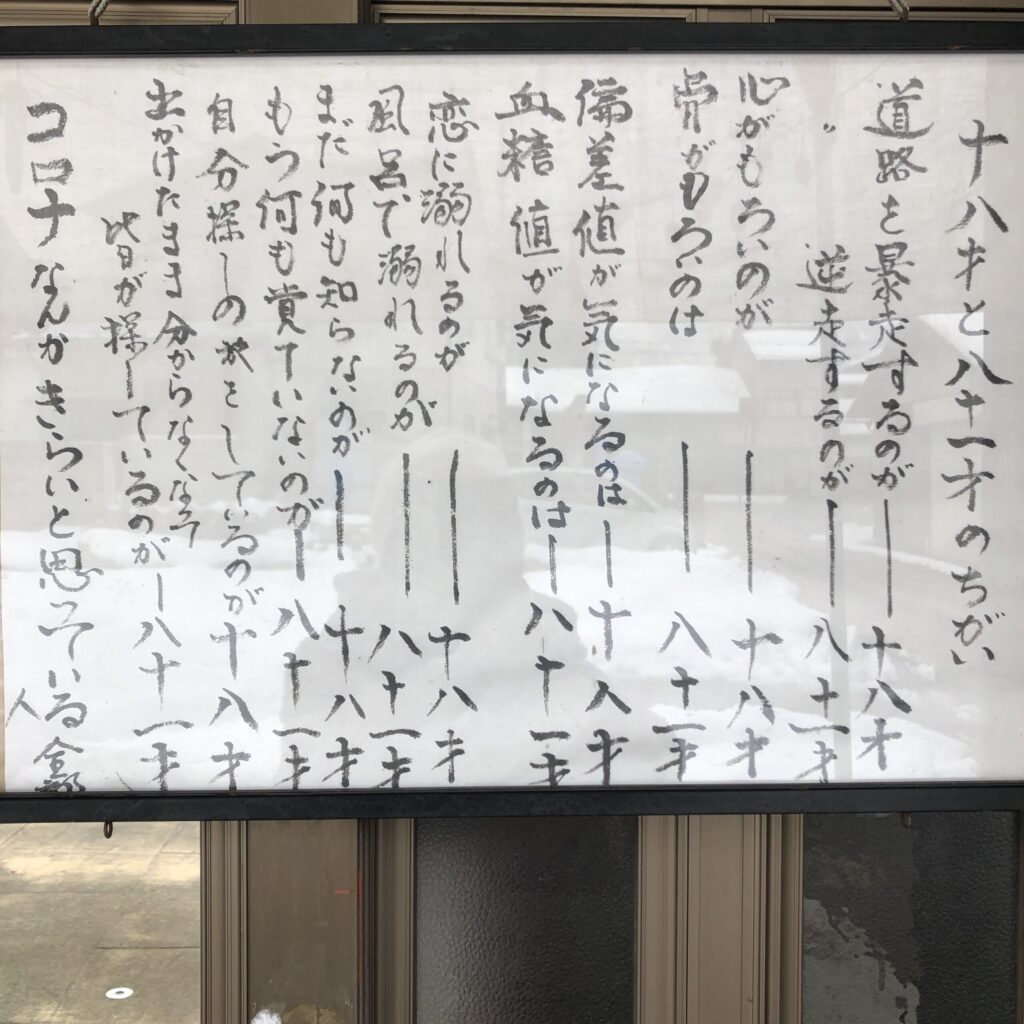 十八才と八十一才のちがい
道路を暴走するのが―十八才
〃逆走するのが―八十一才
心がもろいのが―十八才
骨がもろいのは―八十一才
偏差値が気になるのは―十八才
血糖値が気になるのは―八十一才
恋に溺れるのが―十八才
風呂で溺れるのが―八十一才
まだ何も知らないのが―十八才
もう何も覚ていないのが―八十一才
自分探しの旅をしているのが十八才
出かけたまま分からなくなって
皆が探しているのが―八十一才
コロナなんかきらいと思っている人全部